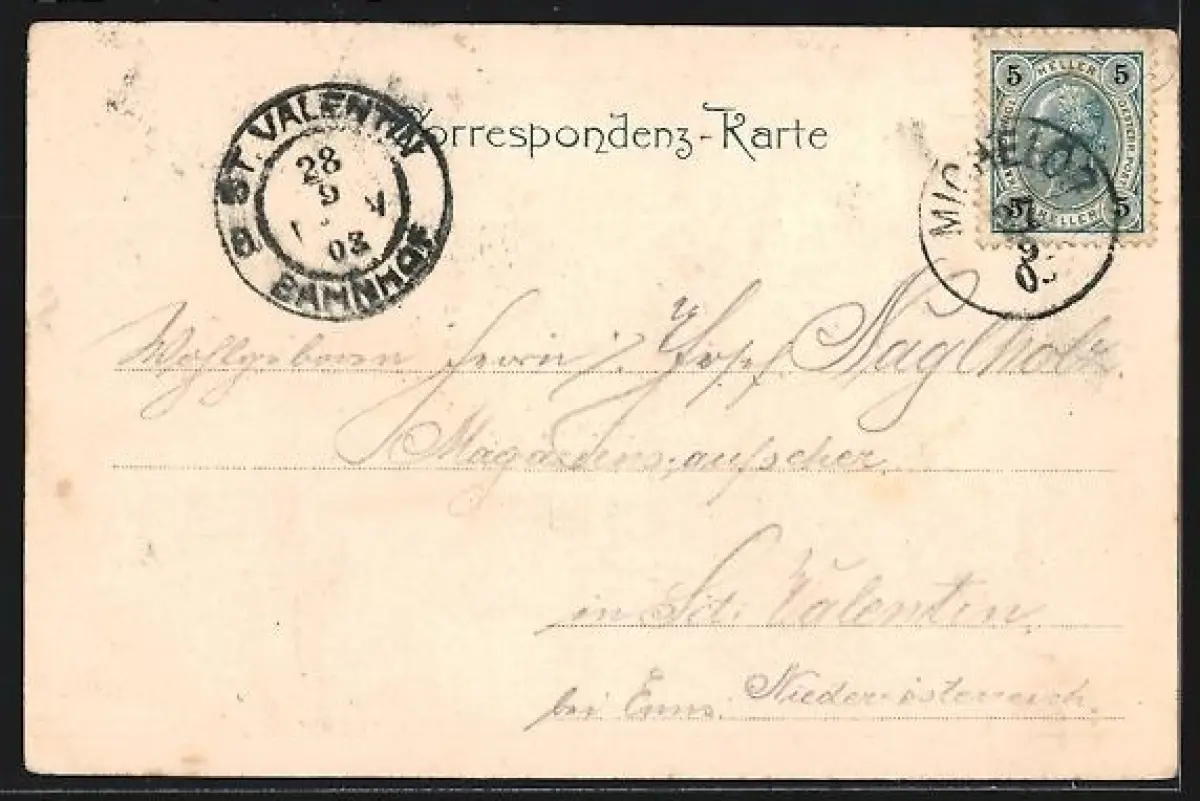 Correspondenz-Karte
ST. VALENTIN
28
9
03
BAHNHOF
5 HELLER 5
5 HELLER 5
9
Wohlgeboren Herrn Josef Naglholz
Magazinsaufseher
in St. Valentin
bei Enns. Niederösterreich.